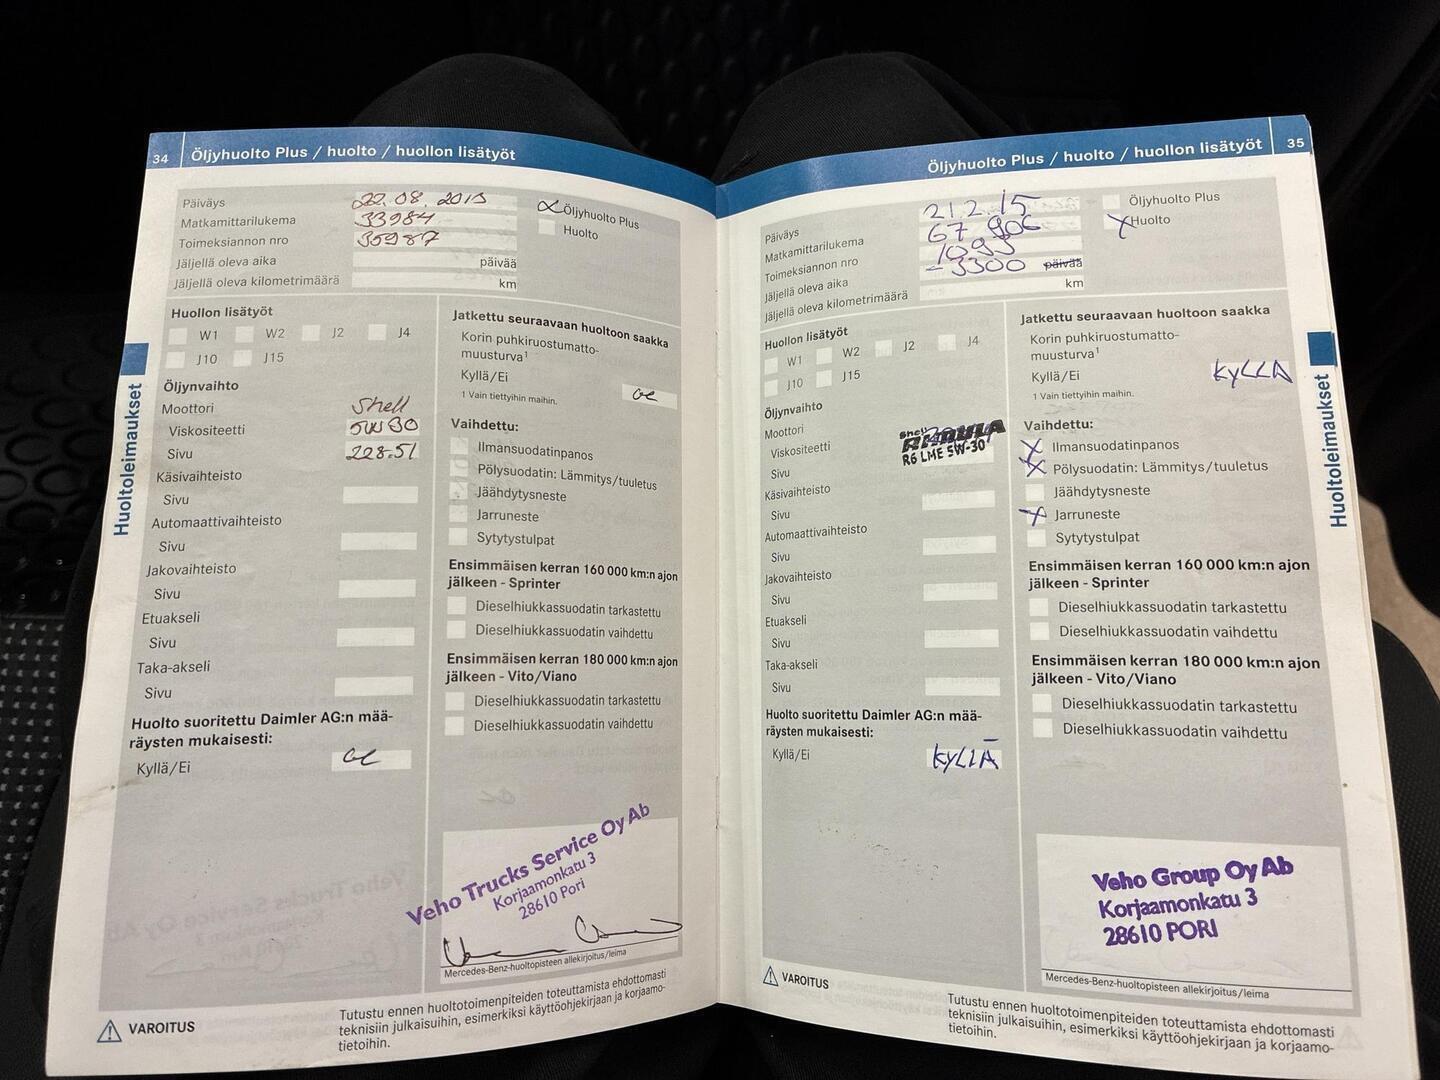 34 Öljyhuolto Plus / huolto / huollon lisätyöt
Päiväys 22.08.2013
Matkamittarilukema 33984
Toimeksiannon nro 35987
Jäljellä oleva aika päivää
Jäljellä oleva kilometrimäärä km
Öljyhuolto Plus
Huolto
Huollon lisätyöt
W1 W2 J2 J4
J10 J15
Öljynvaihto
Moottori Shell
Viskositeetti 5W30
Sivu 228.51
Käsivaihteisto
Sivu
Automaattivaihteisto
Sivu
Jakovaihteisto
Sivu
Etuakseli
Sivu
Taka-akseli
Sivu
Huolto suoritettu Daimler AG:n mää-
räysten mukaisesti:
Kyllä/Ei
Jatkettu seuraavaan huoltoon saakka
Korin puhkiruostumatto-
muusturva¹
Kyllä/Ei
1 Vain tiettyihin maihin.
Vaihdettu:
Ilmansuodatinpanos
Pölysuodatin: Lämmitys/tuuletus
Jäähdytysneste
Jarruneste
Sytytystulpat
Ensimmäisen kerran 160 000 km:n ajon
jälkeen - Sprinter
Dieselhiukkassuodatin tarkastettu
Dieselhiukkassuodatin vaihdettu
Ensimmäisen kerran 180 000 km:n ajon
jälkeen - Vito/Viano
Dieselhiukkassuodatin tarkastettu
Dieselhiukkassuodatin vaihdettu
Veho Trucks Service Oy Ab
Korjaamonkatu 3
28610 Pori
Mercedes-Benz-huoltopisteen allekirjoitus/leima
VAROITUS
Tutustu ennen huoltotoimenpiteiden toteuttamista ehdottomasti
teknisiin julkaisuihin, esimerkiksi käyttöohjekirjaan ja korjaamo-
tietoihin.
Huoltoleimaukset
Öljyhuolto Plus / huolto / huollon lisätyöt 35
Päiväys 21.2.15
Matkamittarilukema 67 906
Toimeksiannon nro 1093
Jäljellä oleva aika -3300 päivää
Jäljellä oleva kilometrimäärä km
Öljyhuolto Plus
X Huolto
Huollon lisätyöt
W1 W2 J2 J4
J10 J15
Öljynvaihto
Moottori
Viskositeetti Shell RIMULA
R6 LME 5W-30
Sivu
Käsivaihteisto
Sivu
Automaattivaihteisto
Sivu
Jakovaihteisto
Sivu
Etuakseli
Sivu
Taka-akseli
Sivu
Huolto suoritettu Daimler AG:n mää-
räysten mukaisesti:
Kyllä/Ei KYLLÄ
Jatkettu seuraavaan huoltoon saakka
Korin puhkiruostumatto-
muusturva¹
Kyllä/Ei KYLLÄ
1 Vain tiettyihin maihin.
Vaihdettu:
X Ilmansuodatinpanos
X Pölysuodatin: Lämmitys/tuuletus
Jäähdytysneste
X Jarruneste
Sytytystulpat
Ensimmäisen kerran 160 000 km:n ajon
jälkeen - Sprinter
Dieselhiukkassuodatin tarkastettu
Dieselhiukkassuodatin vaihdettu
Ensimmäisen kerran 180 000 km:n ajon
jälkeen - Vito/Viano
Dieselhiukkassuodatin tarkastettu
Dieselhiukkassuodatin vaihdettu
Veho Group Oy Ab
Korjaamonkatu 3
28610 PORI
Mercedes-Benz-huoltopisteen allekirjoitus/leima
VAROITUS
Tutustu ennen huoltotoimenpiteiden toteuttamista ehdottomasti
teknisiin julkaisuihin, esimerkiksi käyttöohjekirjaan ja korjaamo-
tietoihin.
Huoltoleimaukset